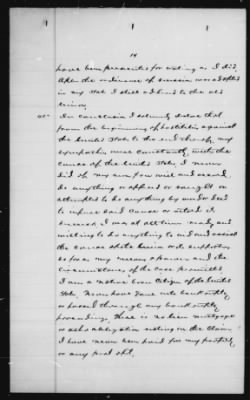 14
have been persecuted for voting as I did.
After the ordinance of secession was adopted
in my state I still adhered to the old
Union.
40th In conclusion I solemnly declare that
from the beginning of hostilities against
the United States to the end thereof my
sympathies were constantly with the
cause of the United States, I never
did of my own free will and accord
do anything or offered or sought or
attempted to do anything by word or deed
to injure said cause or retard its
success, I was at all times ready and
willing to do anything to aid and assist
the cause of the Union or its supporters
so far as my means & power and the
circumstances of the case permitted
I am a native born Citizen of the United
States. Never have gone into bankruptcy
or passed through any bankruptcy
proceedings. There is no lien mortgage
or other obligation resting on the Claim.
I have never been paid for my property
or any part of it.